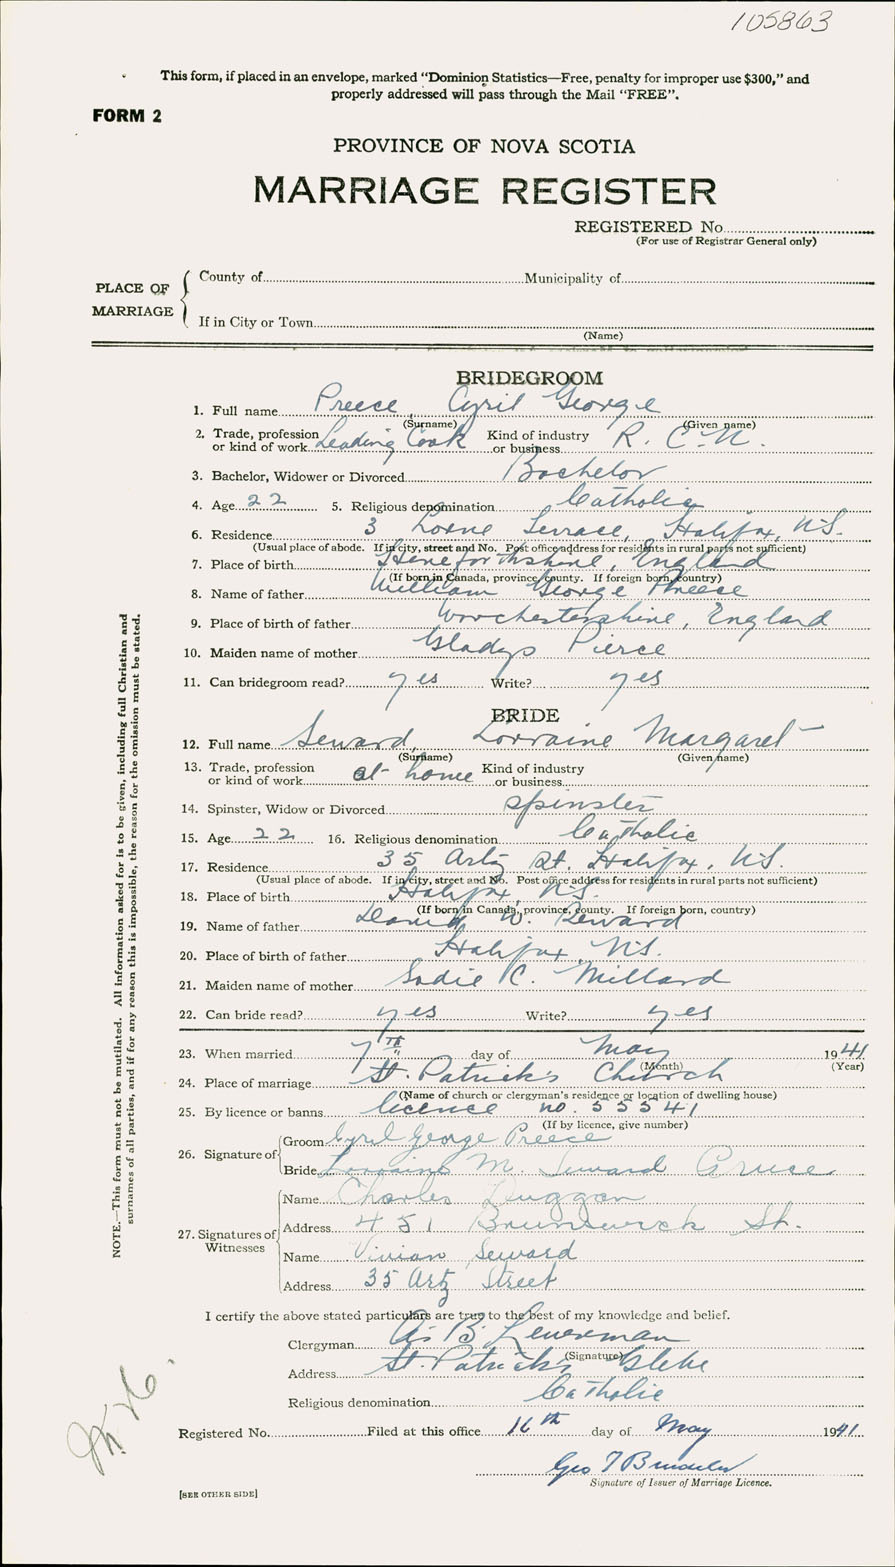 105863
This form, if placed in an envelope, marked "Dominion Statistics—Free, penalty for improper use $300," and
properly addressed will pass through the Mail "FREE".
FORM 2
PROVINCE OF NOVA SCOTIA
MARRIAGE REGISTER
REGISTERED No.
(For use of Registrar General only)
PLACE OF MARRIAGE
County of Municipality of
If in City or Town
(Name)
BRIDEGROOM
1. Full name Preece, Cyril George
(Surname) (Given name)
2. Trade, profession or kind of work Leading Cook Kind of industry or business R. C. N.
3. Bachelor, Widower or Divorced Bachelor
4. Age 22 5. Religious denomination Catholic
6. Residence 3 Lorne Terrace, Halifax, N.S.
(Usual place of abode. If in city, street and No. Post office address for residents in rural parts not sufficient)
7. Place of birth Herefordshire, England
(If born in Canada, province, county. If foreign born, country)
8. Name of father William George Preece
9. Place of birth of father Worchestershire, England
10. Maiden name of mother Gladys Pierce
11. Can bridegroom read? yes Write? yes
BRIDE
12. Full name Seward, Lorraine Margaret
(Surname) (Given name)
13. Trade, profession or kind of work at home Kind of industry or business
14. Spinster, Widow or Divorced spinster
15. Age 22 16. Religious denomination Catholic
17. Residence 35 Artz St. Halifax, N.S.
(Usual place of abode. If in city, street and No. Post office address for residents in rural parts not sufficient)
18. Place of birth Halifax, N.S.
(If born in Canada, province, county. If foreign born, country)
19. Name of father W. Seward
20. Place of birth of father Halifax, N.S.
21. Maiden name of mother Sadie C. Millard
22. Can bride read? yes Write? yes
23. When married 7th day of May 1941
(Month) (Year)
24. Place of marriage St. Patrick's Church
(Name of church or clergyman's residence or location of dwelling house)
25. By licence or banns licence no. 55541
(If by licence, give number)
26. Signature of Groom Cyril George Preece
Bride Lorraine M. Seward
27. Signatures of Witnesses
Name Charles Duggan
Address 451 Brunswick St.
Name Vivian Seward
Address 35 Artz Street
I certify the above stated particulars are true to the best of my knowledge and belief.
Clergyman B.
(Signature)
Address St. Patrick's Glebe
Religious denomination Catholic
Registered No. Filed at this office 16th day of May 1941
Geo
Signature of Issuer of Marriage Licence.
[SEE OTHER SIDE]
NOTE.—This form must not be mutilated. All information asked for is to be given, including full Christian and
surnames of all parties, and if for any reason this is impossible, the reason for the omission must be stated.